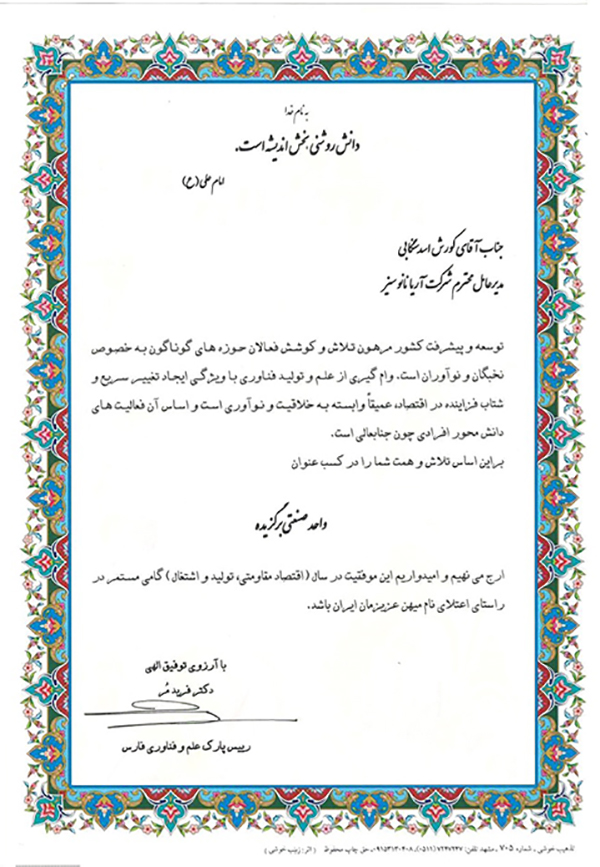 به نام خدا
دانش روشنی بخش اندیشه است.
امام علی (ع)
جناب آقای کورش اسدسنگابی
مدیر عامل محترم شرکت آریا نانو سنیز
توسعه و پیشرفت کشور مرهون تلاش و کوشش فعالان حوزه های گوناگون به خصوص
نخبگان و نوآوران است. وام گیری از علم و تولید فناوری با ویژگی ایجاد تغییر سریع و
شتاب فزاینده در اقتصاد، عمیقاً وابسته به خلاقیت و نوآوری است و اساس آن فعالیت های
دانش محور افرادی چون جنابعالی است.
براین اساس تلاش و همت شما را در کسب عنوان
واحد صنعتی برگزیده
ارج می نهیم و امیدواریم این موفقیت در سال (اقتصاد مقاومتی، تولید و اشتغال) گامی مستمر در
راستای اعتلای نام میهن عزیزمان ایران باشد.
با آرزوی توفیق الهی
دکتر فرید مُر
رییس پارک علم و فناوری فارس
تذهیب خوشی ـ شماره ۷۰۵ ـ مشهد تلفن: ۷۲۴۷۲۴۷ (۰۵۱۱) ـ ۰۹۱۵۳۱۳۰۴۰۸ ـ حق چاپ محفوظ (اثر: زینب خوشی)